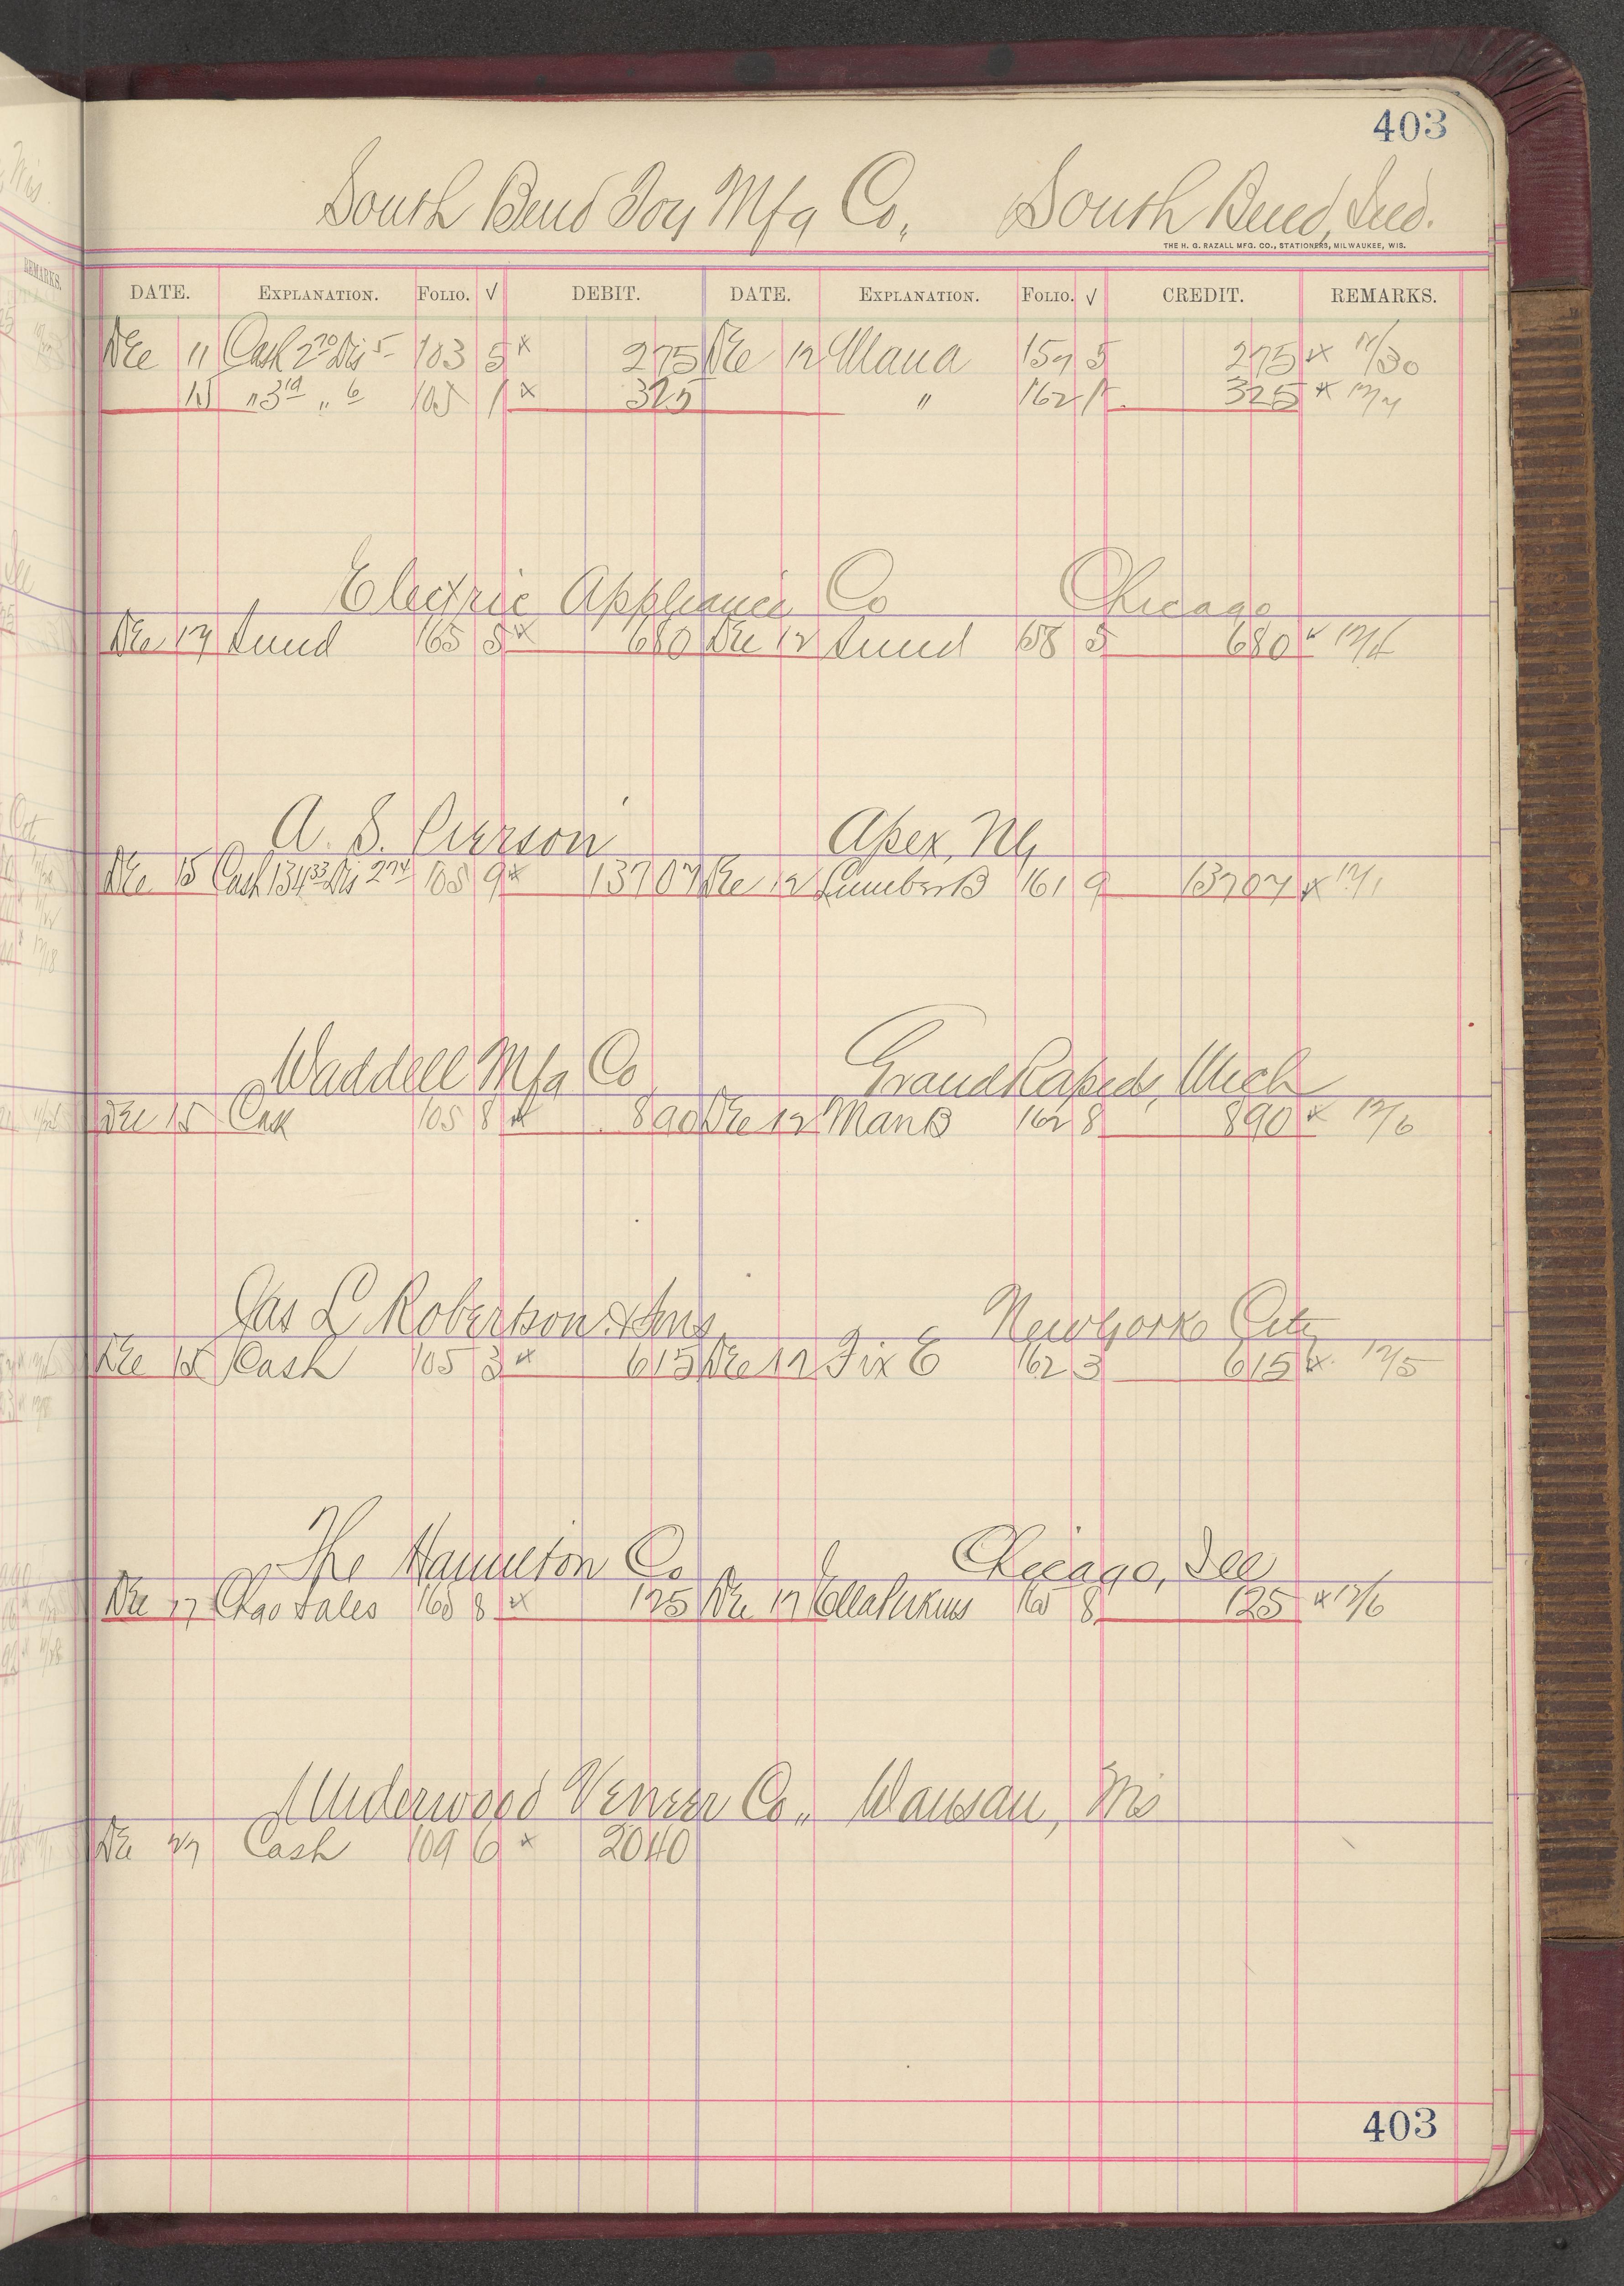 403
South Bend Toy Mfg Co., South Bend, Ind.
THE H. G. RAZALL MFG. CO., STATIONERS, MILWAUKEE, WIS.
DATE. EXPLANATION. FOLIO. √ DEBIT. DATE. EXPLANATION. FOLIO. √ CREDIT. REMARKS.
Dec 11 Cash 2 70 Dis 5 103 5 x 275 Dec 12 157 5 275 x 11/30
15 " 3 19 " 6 105 1 x 325 " 162 1 325 x 12/7
Electric Appliance Co Chicago
Dec 17 Sund 165 5 x 680 Dec 12 Sund 158 5 680 x
A. S. Pierson Apex, NC
Dec 15 Cash 134 33 Dis 2 74 105 9 x 137 07 Dec 12 Lumber B 161 9 137 07 x 12/1
Waddell Mfg Co Grand Rapids, Mich
Dec 15 Cash 105 8 x 8 90 Dec 12 Man B 162 8 8 90 x 12/6
Jas L Robertson & Sons New York City
Dec 15 Cash 105 3 x 6 15 Dec 12 Fix E 162 3 6 15 x 12/5
The Hamilton Co Chicago, Ill
Dec 17 Chgo Sales 165 8 x 1 25 Dec 17 Ella Perkins 165 8 1 25 x 12/6
Underwood Veneer Co., Wausau, Wis
Dec 27 Cash 109 6 x 20 40
403
REMARKS.